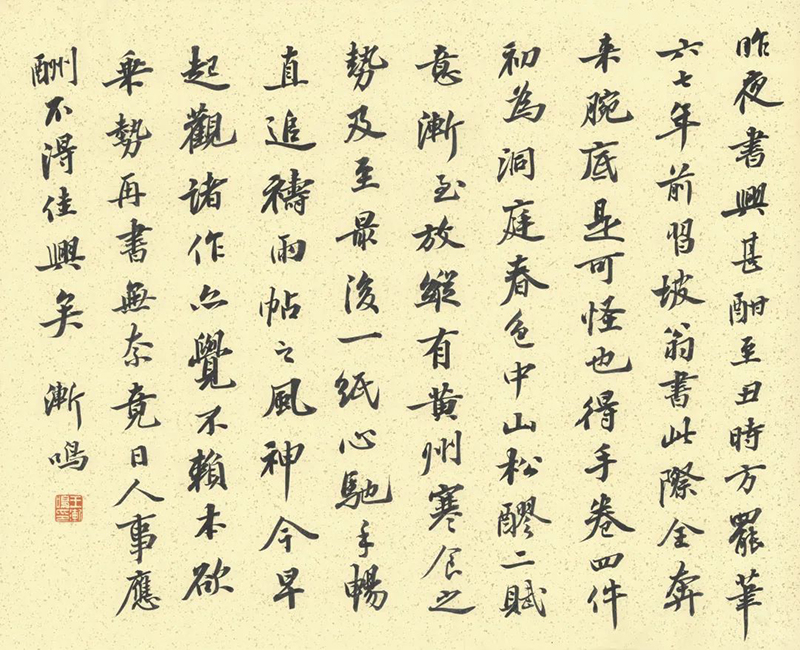 昨夜書興甚酣至丑時方罷筆
六七年前習坡翁書此際全奔
来腕底是可怪也得手卷四件
初為洞庭春色中山松醪二賦
意漸至放縱有黄州寒食之
勢及至最後一紙心馳手暢
直追禱雨帖之風神今早
起觀諸作亦覺不賴本欲
乗勢再書無奈竟日人事應
酬不得佳興矣 漸鳴